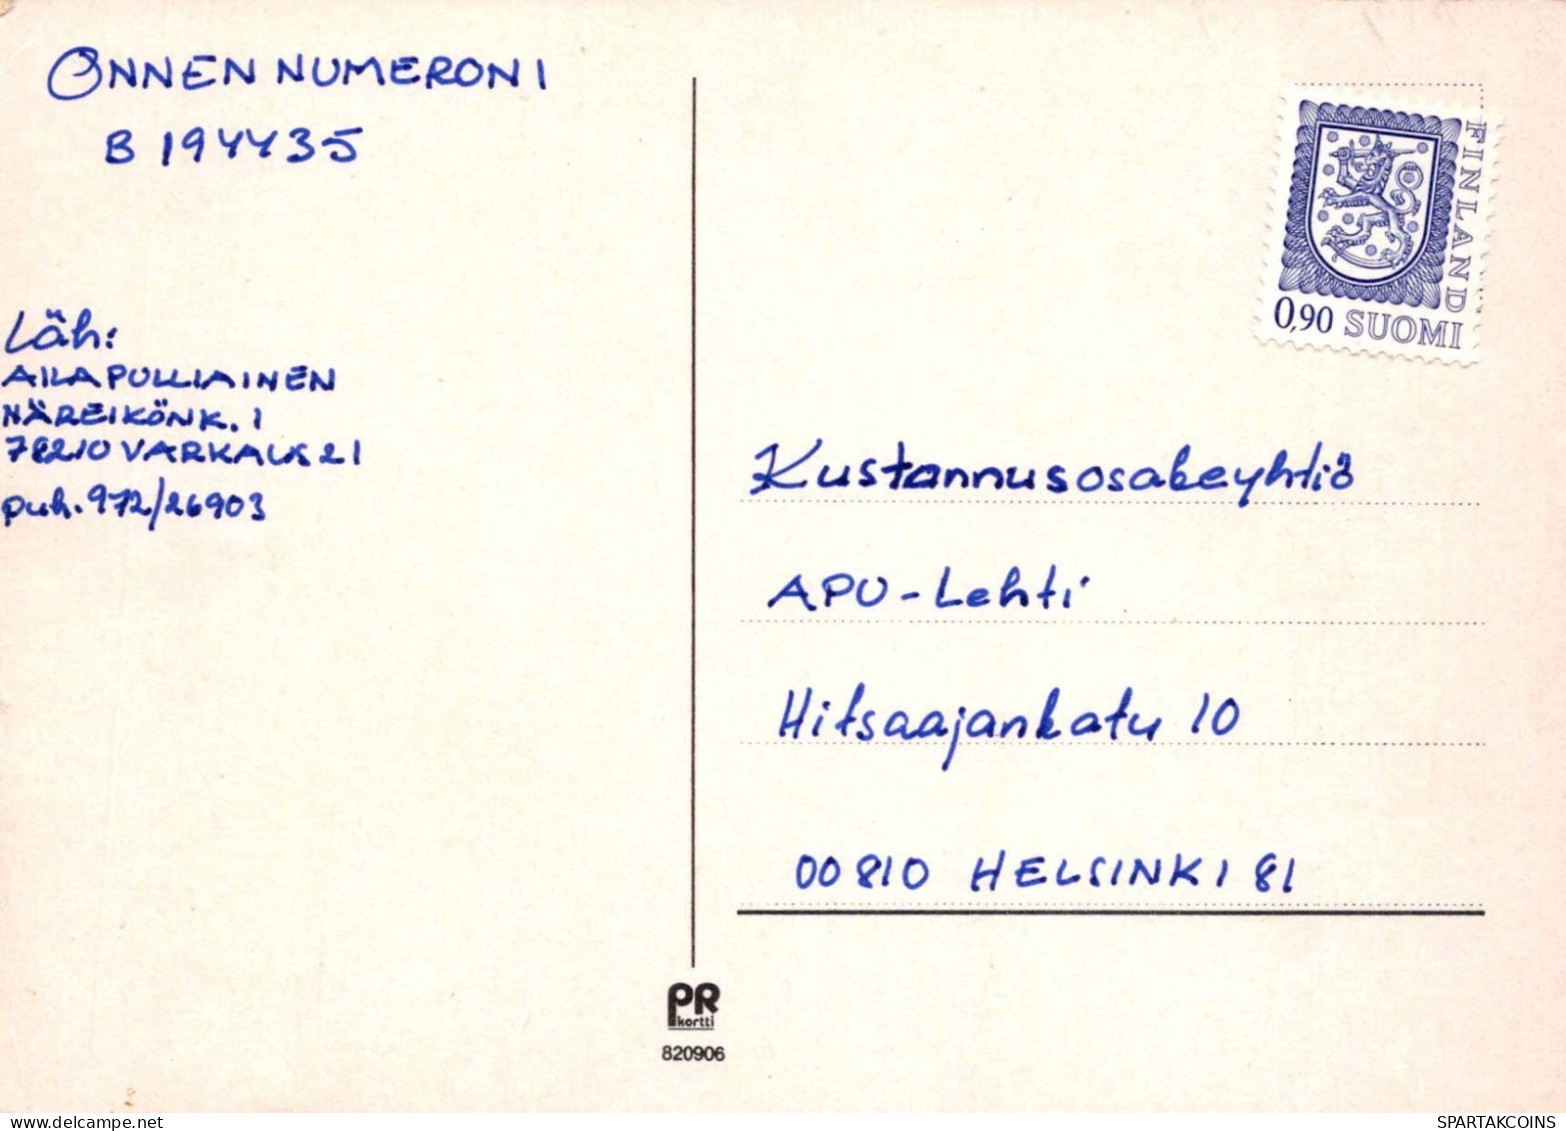 ONNEN NUMERONI
B 194435
Läh:
AILA PULLIAINEN
NÄREIKÖNK. 1
78210 VARKAUS 21
puh. 972/26903
FINLAND
0,90 SUOMI
Kustannusosakeyhtiö
APU-Lehti
Hitsaajankatu 10
00810 HELSINKI 81
PR
kortti
820906
delcampe.net
SPARTAKCOINS